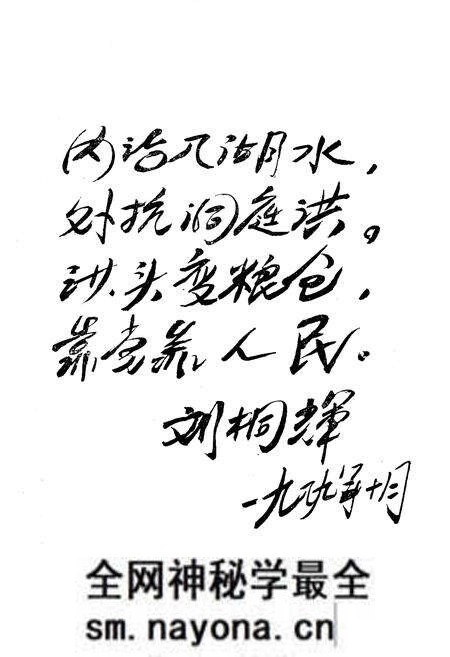 内治湖水,
外抗洞庭洪。
头变粮仓,
靠党靠人民。
刘桐輝
一九年十月
全网神秘学最全
sm.nayona.cn